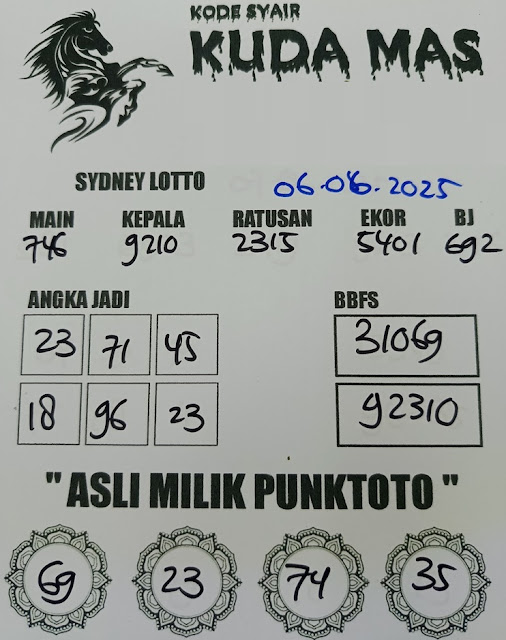 KODE SYAIR
KUDA MAS
SYDNEY LOTTO 06.06.2025
MAIN KEPALA RATUSAN EKOR BJ
746 9210 2315 5401 692
ANGKA JADI BBFS
23 71 45 31069
18 96 23 92310
" ASLI MILIK PUNKTOTO "
69 23 74 35